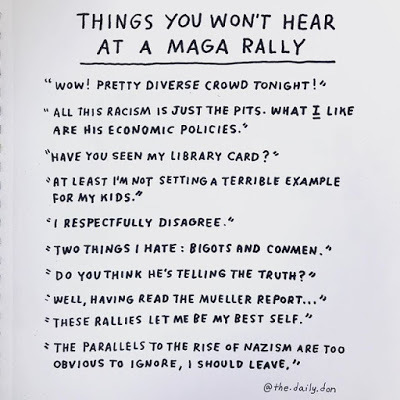 THINGS YOU WON'T HEAR
AT A MAGA RALLY
"WOW! PRETTY DIVERSE CROWD TONIGHT!"
"ALL THIS RACISM IS JUST THE PITS. WHAT I LIKE
ARE HIS ECONOMIC POLICIES."
"HAVE YOU SEEN MY LIBRARY CARD?"
"AT LEAST I'M NOT SETTING A TERRIBLE EXAMPLE
FOR MY KIDS."
"I RESPECTFULLY DISAGREE."
"TWO THINGS I HATE: BIGOTS AND CONMEN."
"DO YOU THINK HE'S TELLING THE TRUTH?"
"WELL, HAVING READ THE MUELLER REPORT..."
"THESE RALLIES LET ME BE MY BEST SELF."
"THE PARALLELS TO THE RISE OF NAZISM ARE TOO
OBVIOUS TO IGNORE, I SHOULD LEAVE."
@the.daily.don